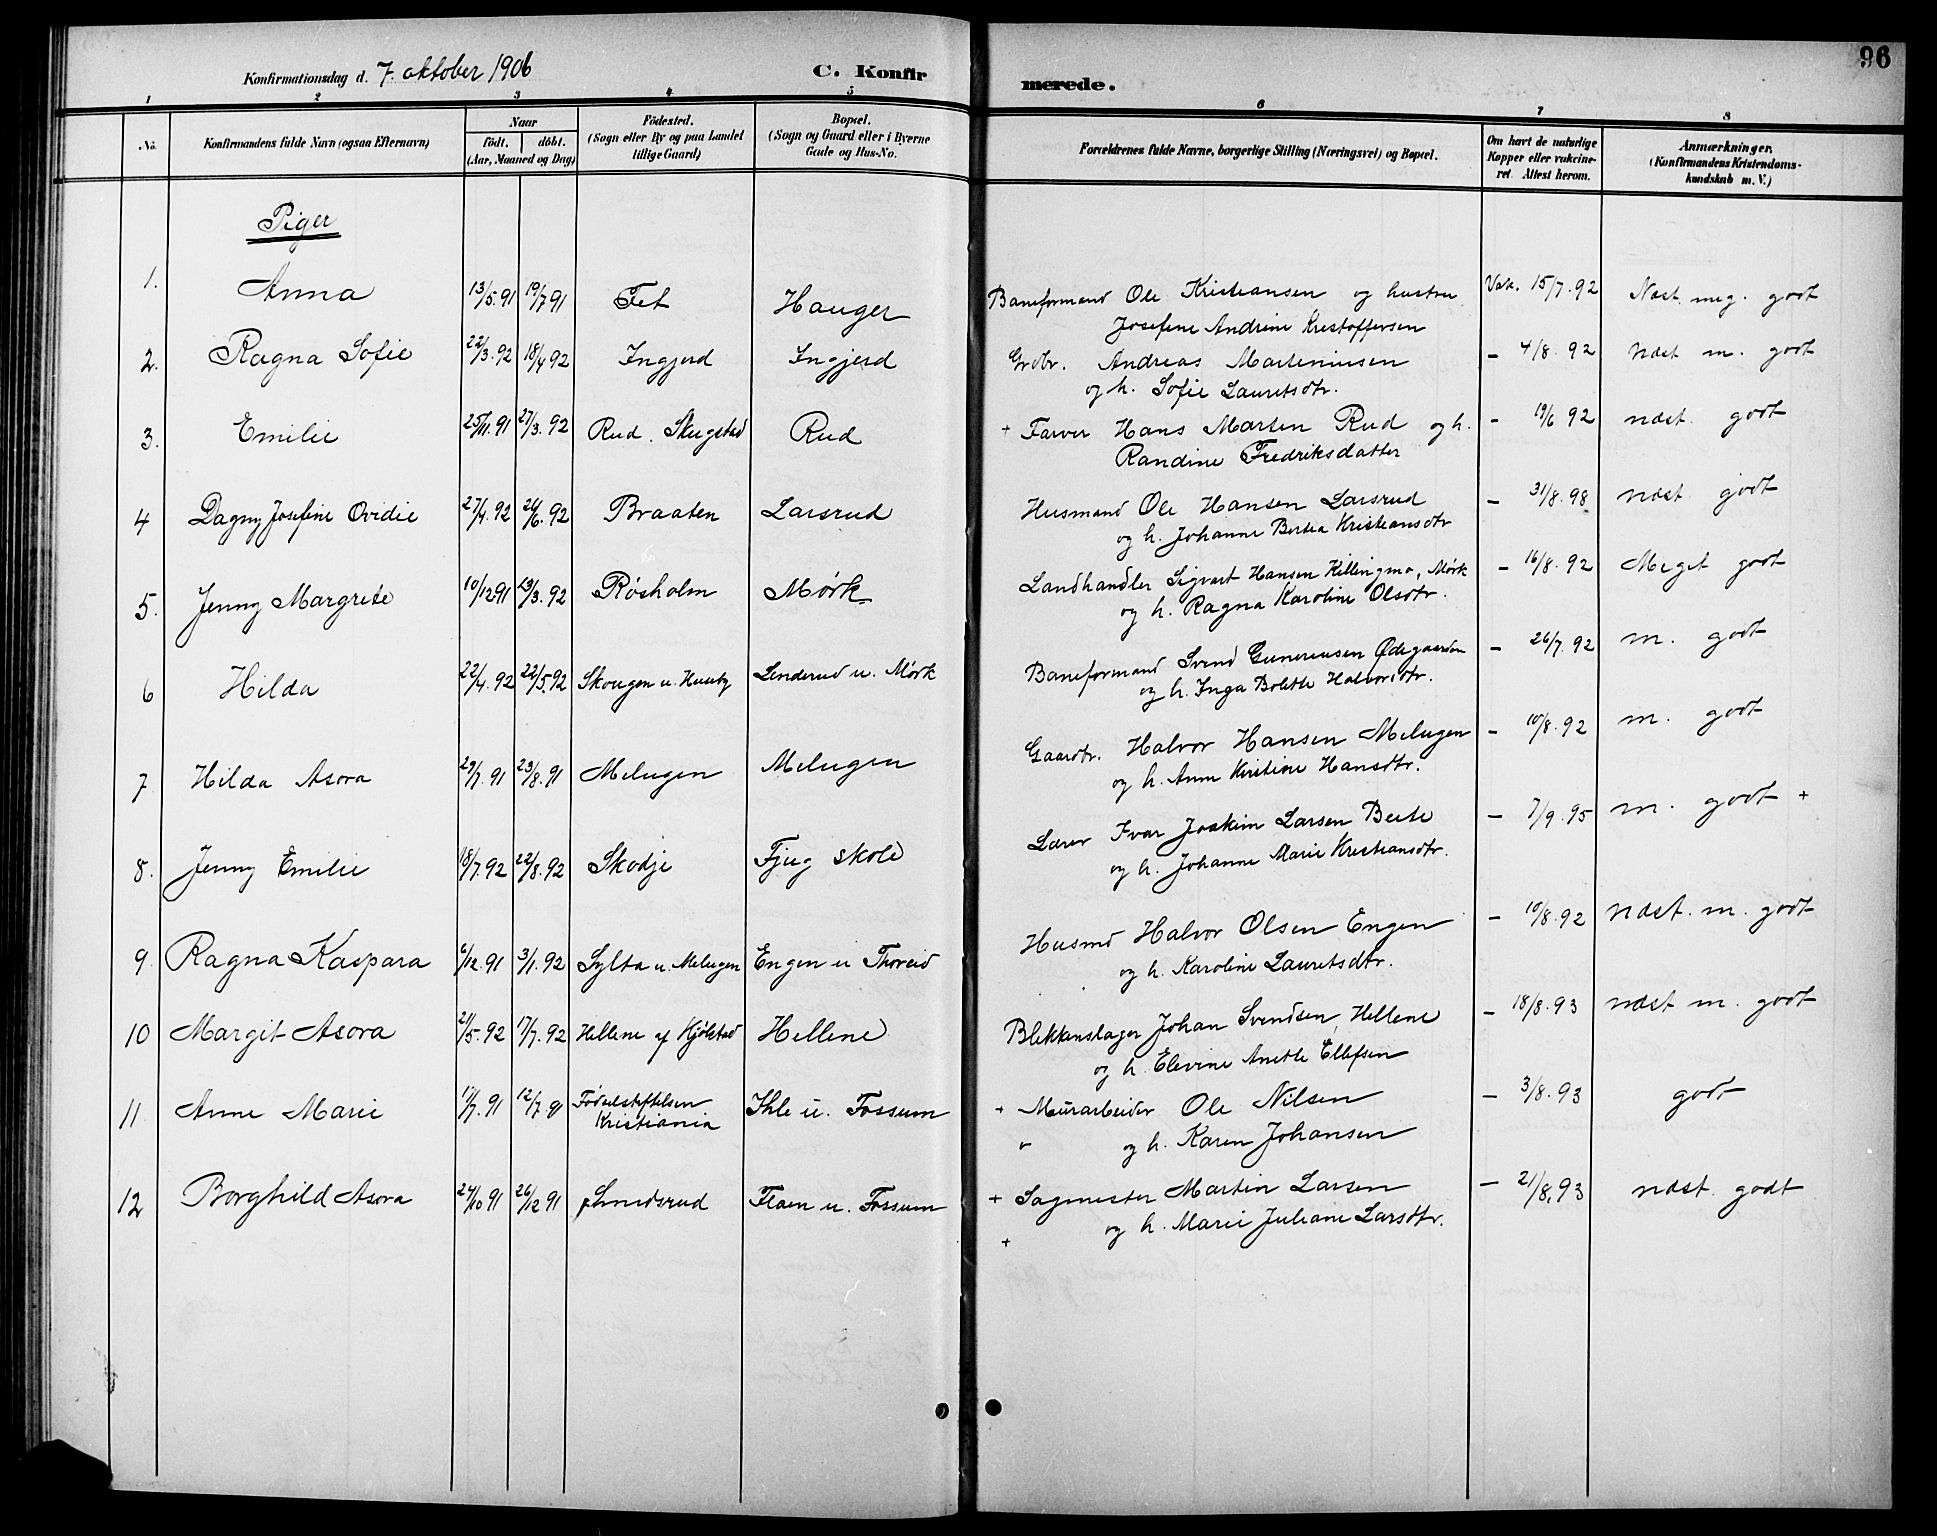 Konfirmationsdag d. 7. oktober 1906 C. Konfirmerede. 96
1 2 3 4 5 6 7 8
No. Konfirmandens fulde Navn (ogsaa Efternavn) Naar födt. döbt. (Aar, Maaned og Dag) Födested. (Sogn eller By og paa Landet tillige Gaard) Bopæl. (Sogn og Gaard eller i Byerne Gade og Hus-No. Forældrenes fulde Navne, borgerlige Stilling (Næringsvei) og Bopæl. Om havt de naturlige Kopper eller vakcineret. Attest herom. Anmærkninger. (Konfirmandens Kristendomskundskab m. V.)
Piger
1. Anna 13/5.91 19/7 91 Fet Hauger Baneformand Ole Kristiansen og hustru Vak. 15/7.92 Næst meg. godt
Josefine Andrine Kristoffersen
2. Ragna Sofie 22/3.92 18/4 92 Ingjerd Ingjerd Grdbr. Andreas Martiniusen - 4/8.92 Næst m. godt
og h. Sofie Lauretsdtr.
3. Emilie 25/11.91 27/3.92 Rud. Skugstad Rud + Farver Hans Martin Rud og h. - 19/6 92 næst. godt
Randine Fredriksdatter
4 Dagny Josefine Ovidie 27/4.92 26/6.92 Braaten Larsrud Husmand Ole Hansen Larsrud - 31/8.98 næst godt
og h. Johanne Bertea Kristiansdtr
5. Jenny Margrete 10/12 91 13/3.92 Røsholm Mørk Landhandler Sigvart Hansen Killingmo, Mørk - 16/8.92 Meget godt
og h. Ragna Karoline Olsdtr.
6 Hilda 22/4.92 22/5.92 Skougen u. Huseby Lenderud u. Mørk Baneformand Svend Gunerius​en Ødegaarden - 26/7.92 m. godt
og h. Inga Bolette Halvorsdtr.
7 Hilda Asora 29/7.91 23/8.91 Melugen Melugen Gaardbr. Halvor Hansen Melugen - 10/8.92 m. godt
og h. Anne Kirstine Hansdtr.
8. Jenny Emilie 18/7.92 22/8.92 Skodje Fjug skole Lærer Ivar Joakim Larsen Beite - 7/9.95 m. godt +
og h. Johanne Marie Kristiansdtr.
9 Ragna Kaspara 6/12.91 3/1.92 Sylta u. Melugen Engen u Thoreid Husmd Halvor Olsen Engen - 10/8.92 næst. m. godt
og h. Karoline Lauretsdtr.
10 Margit Asora 21/5.92 17/7.92 Hellene af Kjølstad Hellene Blekkenslager Johan Svendsen, Hellene - 18/8.93 næst m. godt
og h. Elevine Anette Ellefsen
11 Anne Marie 1/7.91 12/7.91 Fødselsstiftelsen Ihle u. Fossum + Murarbeider Ole Nilsen - 3/8.93 godt
Kristiania " og h. Karen Johansen
12 Borghild Asora 24/10 91 26/12 91 Smedsrud Flaen u. Fossum + Sagmester Martin Larsen - 21/8.93 næst. godt
+ og h. Marie Juliane Larsdtr.